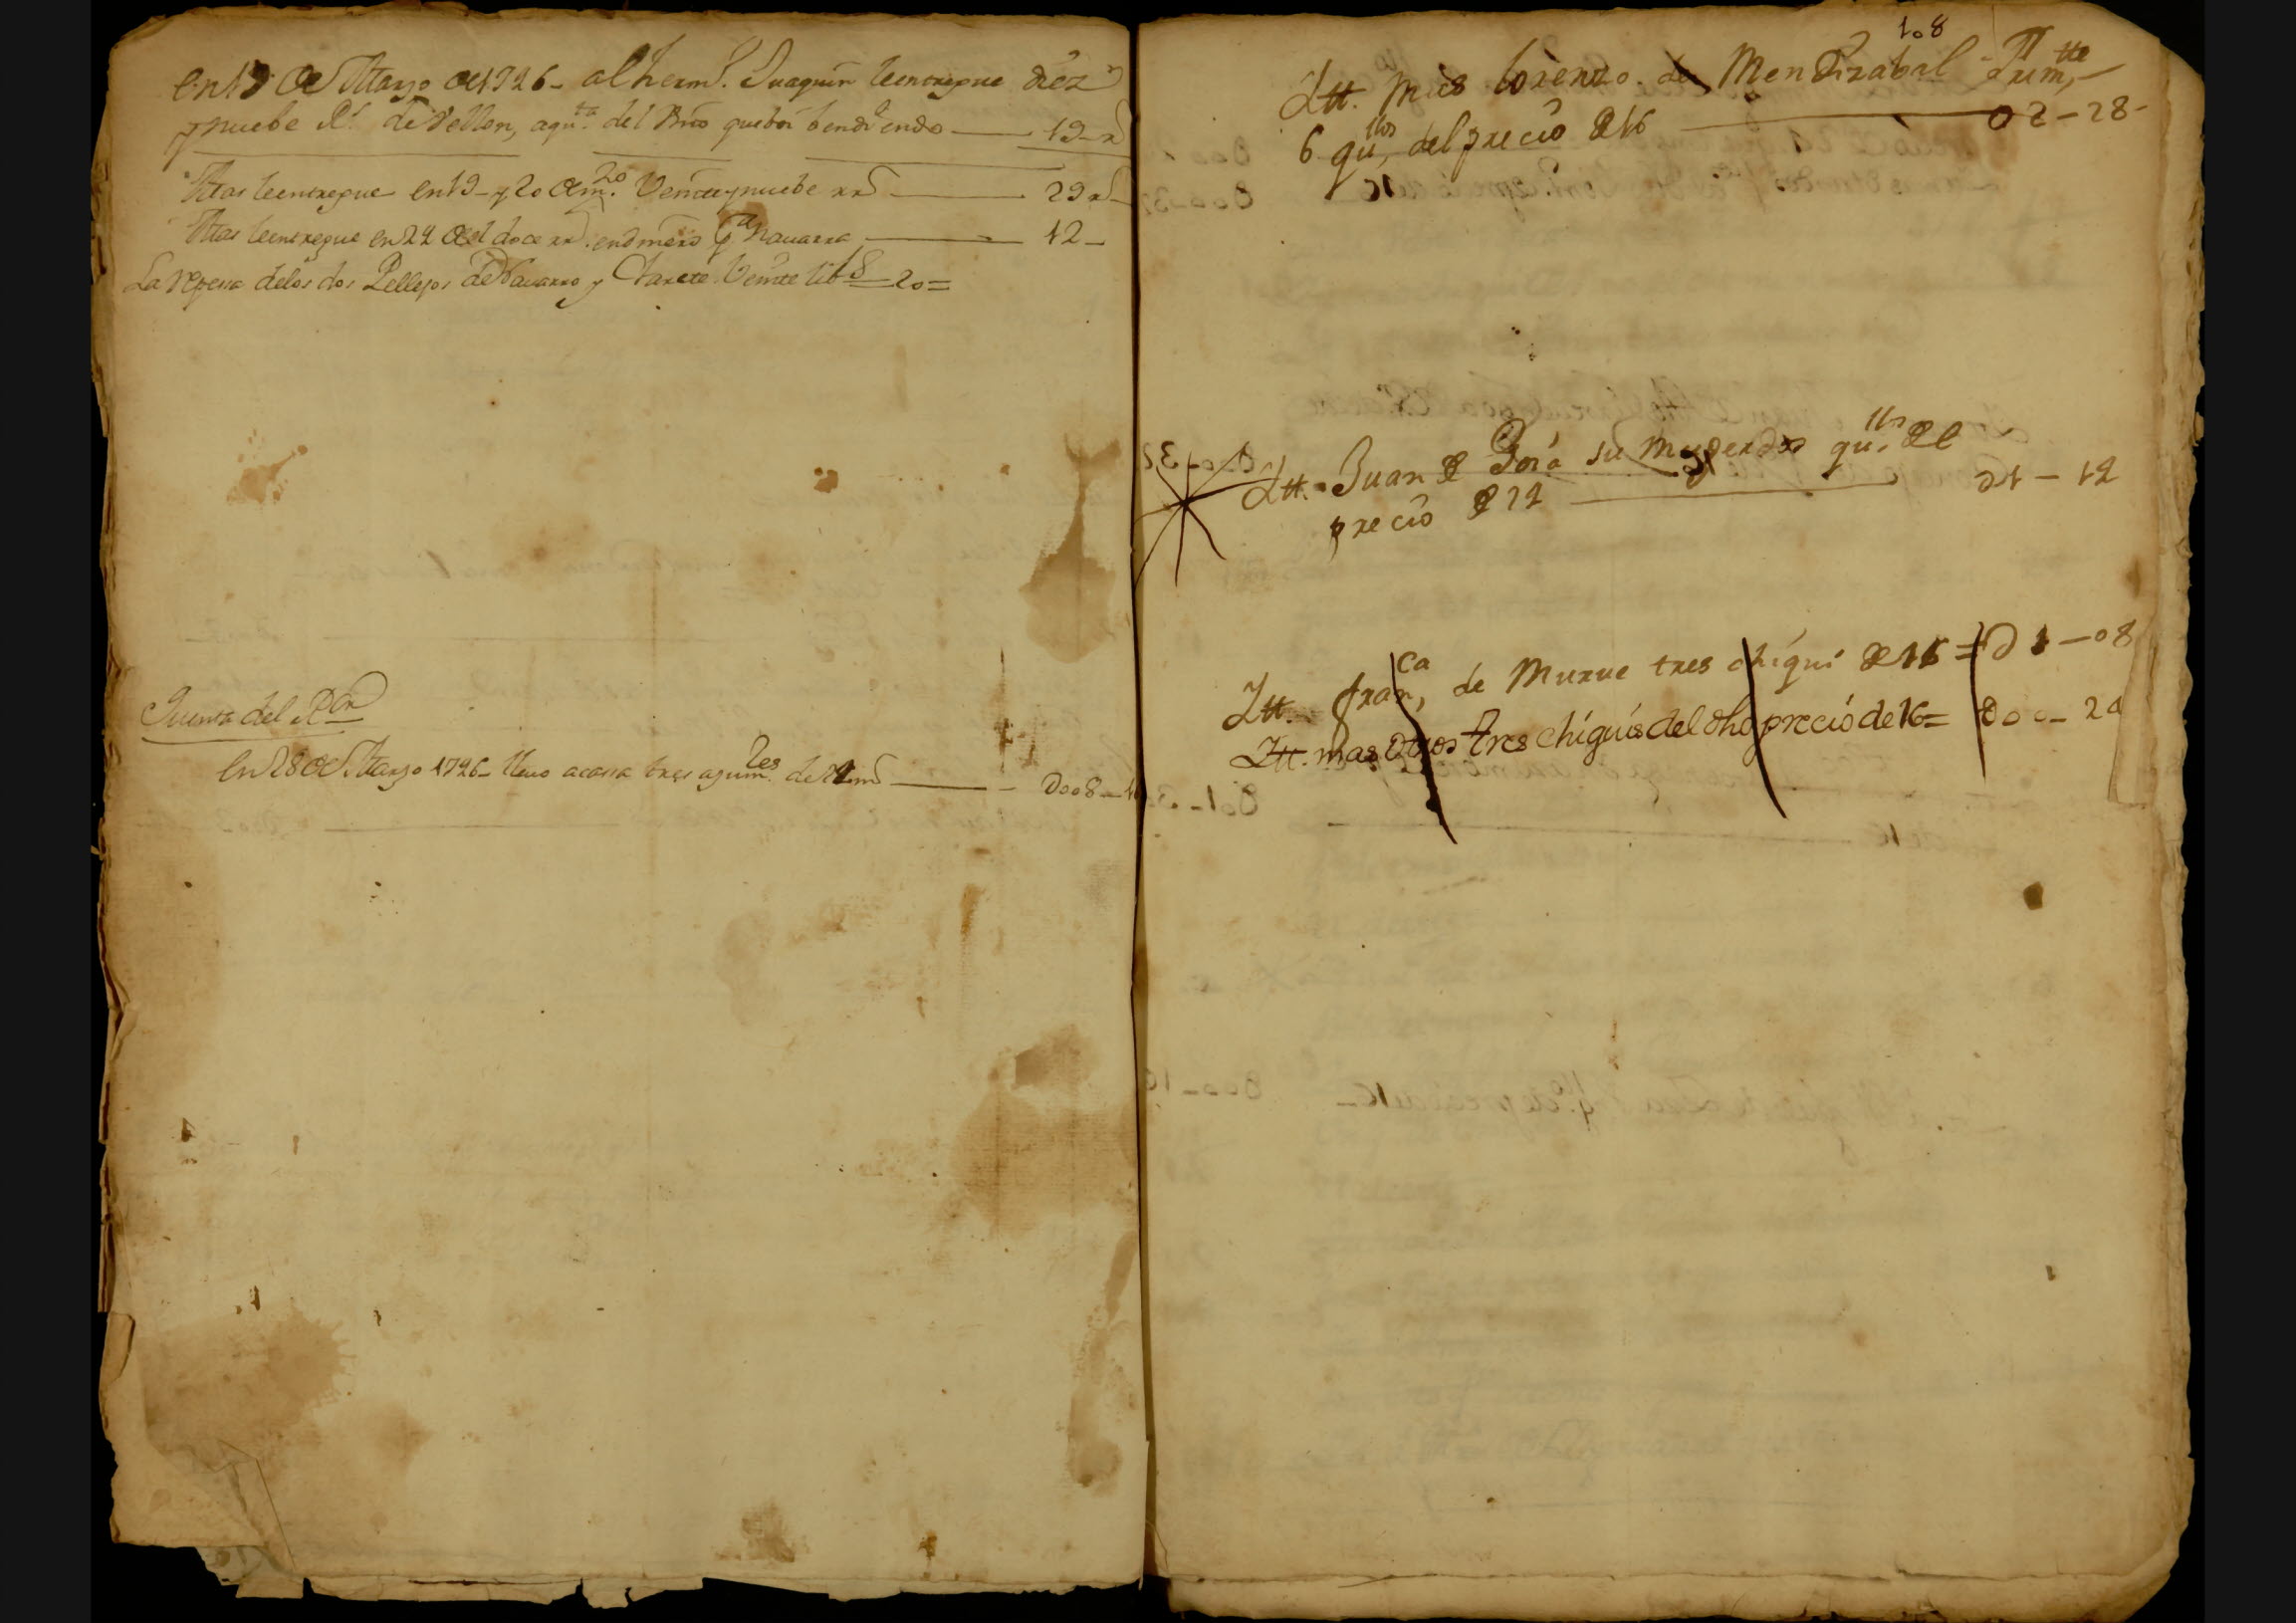 en 19 de Marzo de 1726 - al herm.º Juaquin le entregue diez
y nuebe R.s de Vellon, a qu.ta del Vino que boi bendiendo — 19 - r
Mas le entregue en 19 - y 20 de m.zo Veinte y nuebe rr.s — 29 r.s
Mas le entregue en 24 del doce rr.s en dinero p.a Nauarra — 12 -
La repesa de los dos Pellejos de Nauarro y Clarete Veinte lib.s 20 =
Quenta del R.or
en 28 de Marzo 1726 - lleuo a cassa tres azum.es de — D008 - 1
108
Itt. mas Lorenzo de Mendizabal
6 qu,llos del precio de 16 — 02 - 28 -
Itt. Juan de su muger dos qu,llos del
precio de 24 — 01 - 14
Itt. fran,ca de Murue tres chiqui de 16 = D 1 - 08
Itt. mas otros tres chiquis del dho precio de 16 = D00 - 24